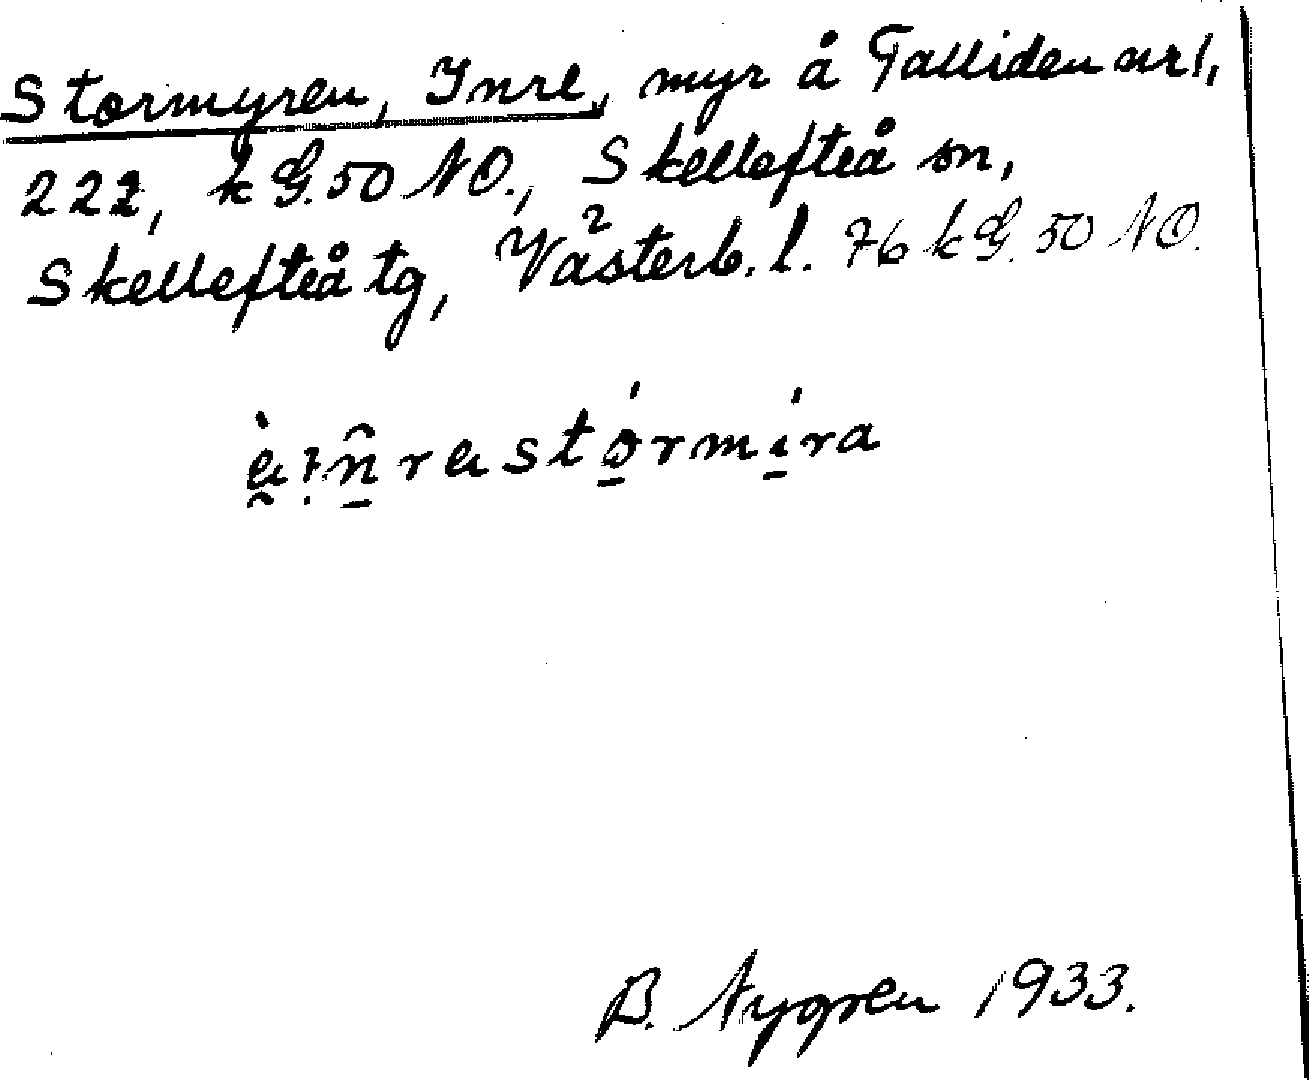 Stormyren, Inre, myr å Talliden nr 1,
222, k G. 50 NO., Skellefteå sn,
Skellefteå tg, Västerb. l. 76 k G. 50 NO.
B. Nygren 1933.